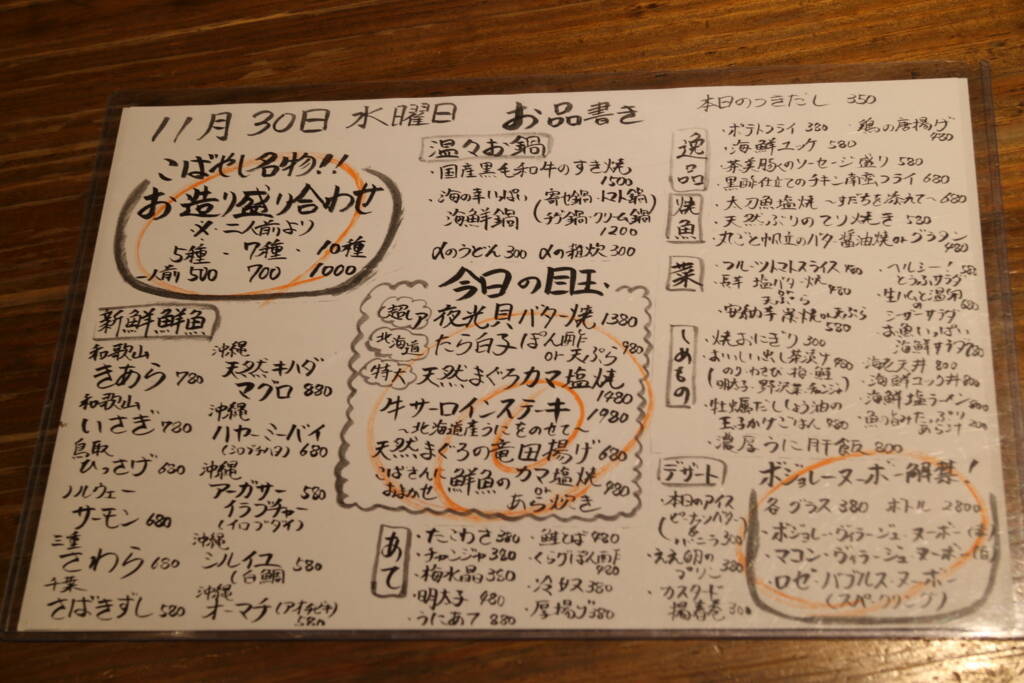 11月30日 水曜日 お品書き
こばやし名物!!
お造り盛り合わせ
〆・二人前より
5種・7種・10種
一人前 500 700 1000
新鮮鮮魚
和歌山
きあら 780
和歌山
いさぎ 780
鳥取
ひっさげ 680
ノルウェー
サーモン 680
三重
さわら 680
千葉
さばきずし 580
沖縄
天然キハダ
マグロ 880
沖縄
ハヤーミーバイ
(シロブチハタ) 680
沖縄
アーガサー 580
イラブチャー
(イロブダイ)
沖縄
シルイユ 580
(白鯛)
沖縄
オーマチ(アオチビキ)
580
温々お鍋
・国産黒毛和牛のすき焼
1500
・海の幸いっぱい
海鮮鍋
(寄せ鍋・トマト鍋
チゲ鍋・クリーム鍋)
1200
〆のうどん 300 〆の雑炊 300
今日の目玉
超レア 夜光貝バター焼 1380
北海道 たら白子ぽん酢 or 天ぷら 980
特大 天然まぐろカマ塩焼
1480
牛サーロインステーキ 1980
〜北海道産うにをのせて〜
天然まぐろの竜田揚げ 680
こばさんに
おまかせ 鮮魚のカマ塩焼
or
あら炊き 980
あて
・たこわさ 380
・チャンジャ 380
・梅水晶 380
・明太子 480
・うにあて 880
・鮭とば 480
・くらげぽん酢
480
・冷奴 380
・厚揚げ 380
本日のつきだし 350
逸品
・ポテトフライ 380
・鶏の唐揚げ
480
・海鮮ユッケ 580
・茶美豚のソーセージ盛り 580
・黒酢仕立てのチキン南蛮フライ 680
焼魚
・太刀魚塩焼 〜すだちを添えて〜 680
・天然ぶりのてり焼き 580
・丸ごと帆立のバター醤油焼 or グラタン
480
菜
・フルーツトマトスライス 480
・長芋 塩バター焼
天ぷら 480
・安納芋 炭焼 or 天ぷら
580
・ヘルシー!
とうふサラダ 580
・生ハムと温卵の
シーザーサラダ
・お魚いっぱい
海鮮サラダ 780
しめもの
・焼おにぎり 300
・おいしい出し茶漬け 480
(のり・わさび・梅・鮭
明太子・野沢菜・チャンジャ)
・牡蠣だしじょう油の
玉子かけごはん 480
・濃厚うに肝飯 800
・海老天丼 800
・海鮮ユッケ丼 800
・海鮮塩ラーメン 800
・魚の旨みたっぷり
あら汁 200
デザート
・本日のアイス
(ピーナッツバター
&バニラ) 300
・ええ卵の
プリン 380
・カスタード
揚春巻 300
ボジョレーヌーボー解禁!
各 グラス 380 ボトル 2800
・ボジョレ・ヴィラージュ ヌーボー(赤)
・マコン・ヴィラージュ ヌーボー(白)
・ロゼ・バブルス・ヌーボー
(スパークリング)